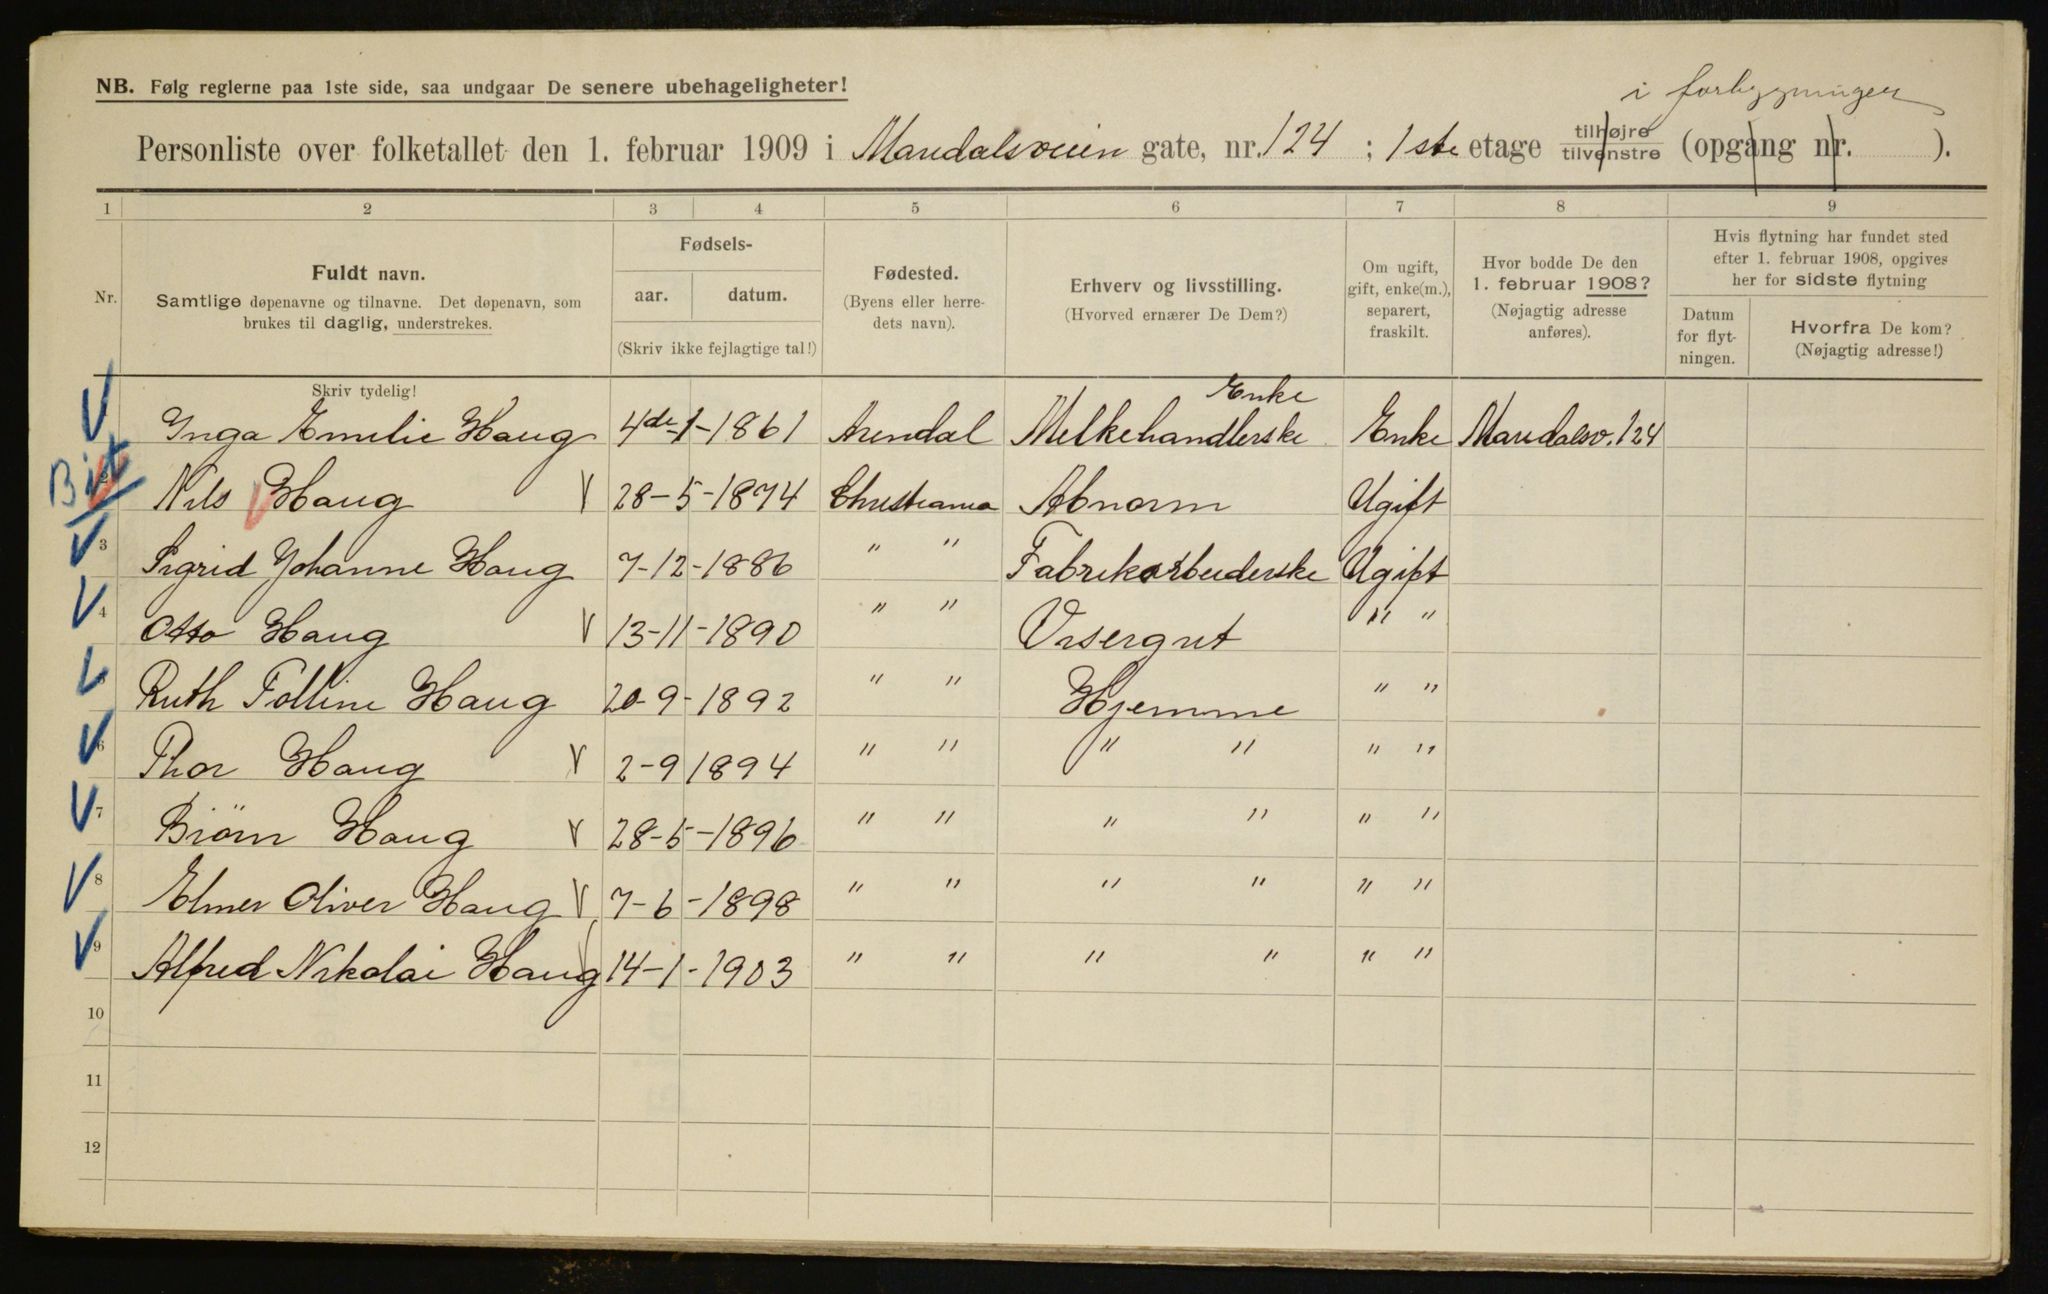 i forbygningen
NB. Følg reglerne paa 1ste side, saa undgaar De senere ubehageligheter!
Personliste over folketallet den 1. februar 1909 i Maridalsveien gate, nr. 124 ; 1ste etage tilhøjre tilvenstre (opgang nr. ).
1 2 3 4 5 6 7 8 9
Nr.
Fuldt navn.
Samtlige døpenavne og tilnavne. Det døpenavn, som
brukes til daglig, understrekes.
Fødsels-
aar. datum.
(Skriv ikke fejlagtige tal!)
Fødested.
(Byens eller herre-
dets navn).
Erhverv og livsstilling.
(Hvorved ernærer De Dem?)
Om ugift,
gift, enke(m.),
separert,
fraskilt.
Hvor bodde De den
1. februar 1908?
(Nøjagtig adresse
anføres).
Hvis flytning har fundet sted
efter 1. februar 1908, opgives
her for sidste flytning
Datum
for flyt-
ningen.
Hvorfra De kom?
(Nøjagtig adresse!)
Skriv tydelig!
Enke
Inga Emelie Haug 4de-1-1861 Arendal Melkehandlerske Enke Maridalsv. 124
Bit
Nils Haug 28-5-1874 Christiania Abnorm Ugift
3 Sigrid Johanne Haug 7-12-1886 " " Fabrikarbeiderske Ugift
4 Otto Haug 13-11-1890 " " Visergut " "
Ruth Folline Haug 20-9-1892 " " Hjemme " "
6 Thor Haug 2-9 1894 " " " " " "
7 Biörn Haug 28-5-1896 " " " " " "
8 Elmer Oliver Haug 7-6-1898 " " " " " "
9 Alfred Nikolai Haug 14-1-1903 " " " " " "
10
11
12